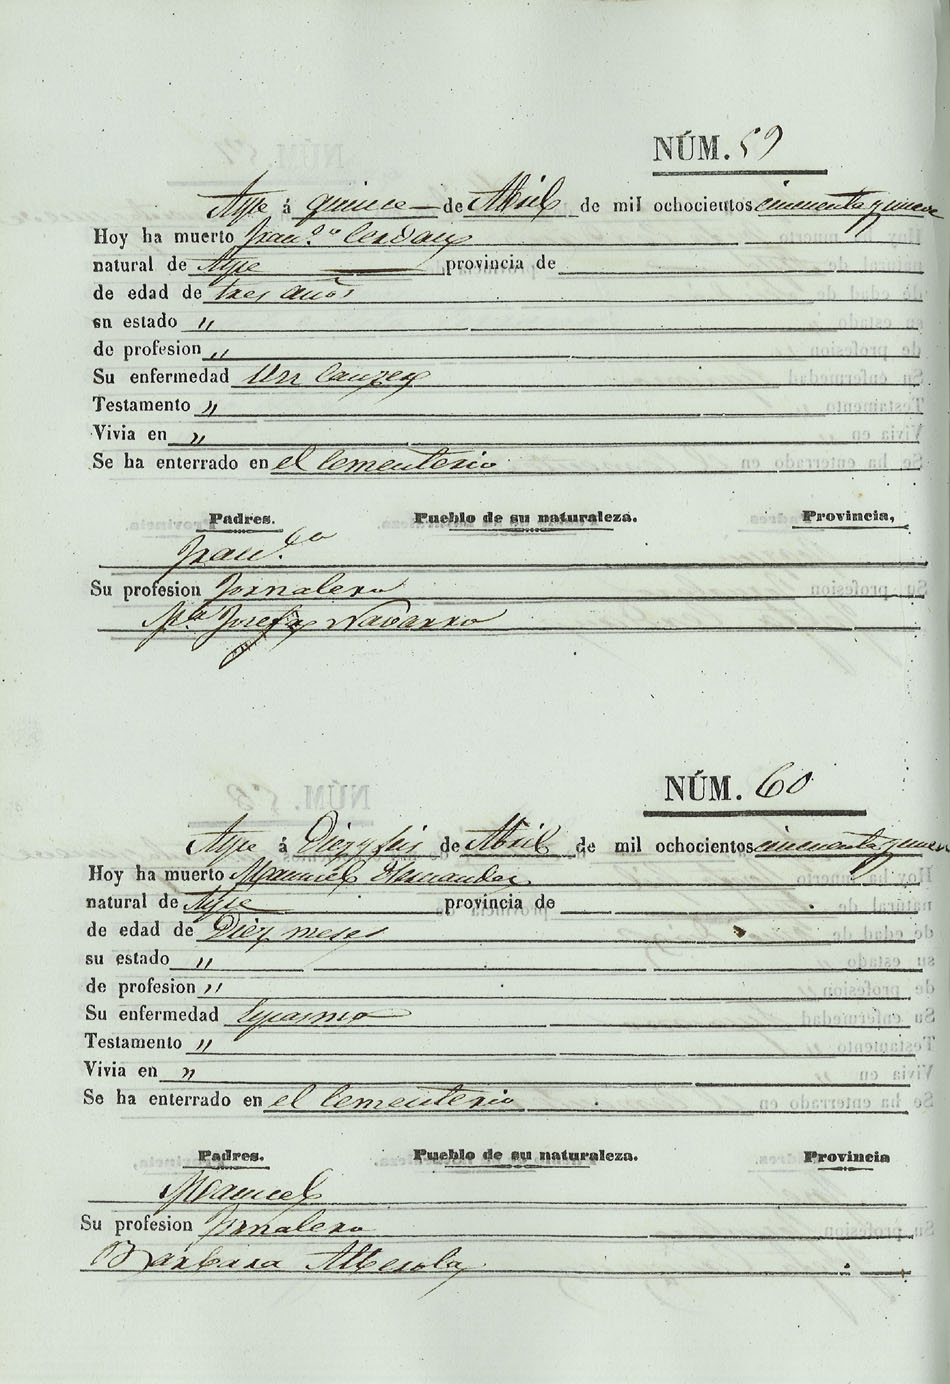 NÚM. 59
Aspe á quince de Abril de mil ochocientos cincuenta y nueve
Hoy ha muerto Fran.co Cerdan
natural de Aspe provincia de
de edad de tres años
en estado "
de profesion "
Su enfermedad Un
Testamento "
Vivia en "
Se ha enterrado en el Cementerio
Padres. Pueblo de su naturaleza. Provincia,
Fran.co
Su profesion Jornalero
M.a Josefa Navarro
NÚM. 60
Aspe á Diez y seis de Abril de mil ochocientos cincuenta y nueve
Hoy ha muerto Manuel Hernandez
natural de Aspe provincia de
de edad de Diez meses
su estado "
de profesion "
Su enfermedad Espasmo
Testamento "
Vivia en "
Se ha enterrado en el Cementerio
Padres. Pueblo de su naturaleza. Provincia
Manuel
Su profesion Jornalero
Barbara Alberola